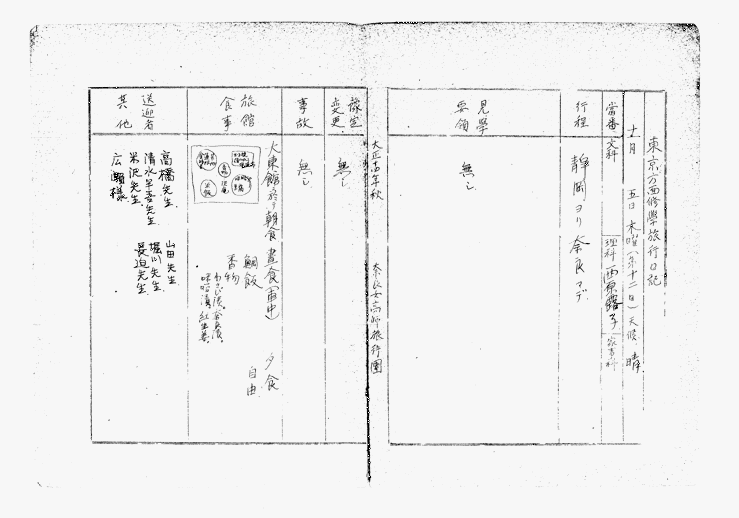 東京方面修學旅行日記
十一月 五日 木曜(第十二日) 天候 晴
當番 文科 理科 西原露子 家事科
行程 靜岡ヨリ奈良マデ
見學要領
無シ
大正十四年秋 奈良女高師旅行團
豫定変更
無シ
事故
無シ
旅館食事
大東館ニ於テ朝食 晝食(車中) 夕食
鯛飯 自由
香物
わさび漬、奈良漬、
味噌漬、紅生姜、
送迎者其他
高橋先生 山田先生
清水先生 堀川先生
米沢先生
広瀬様